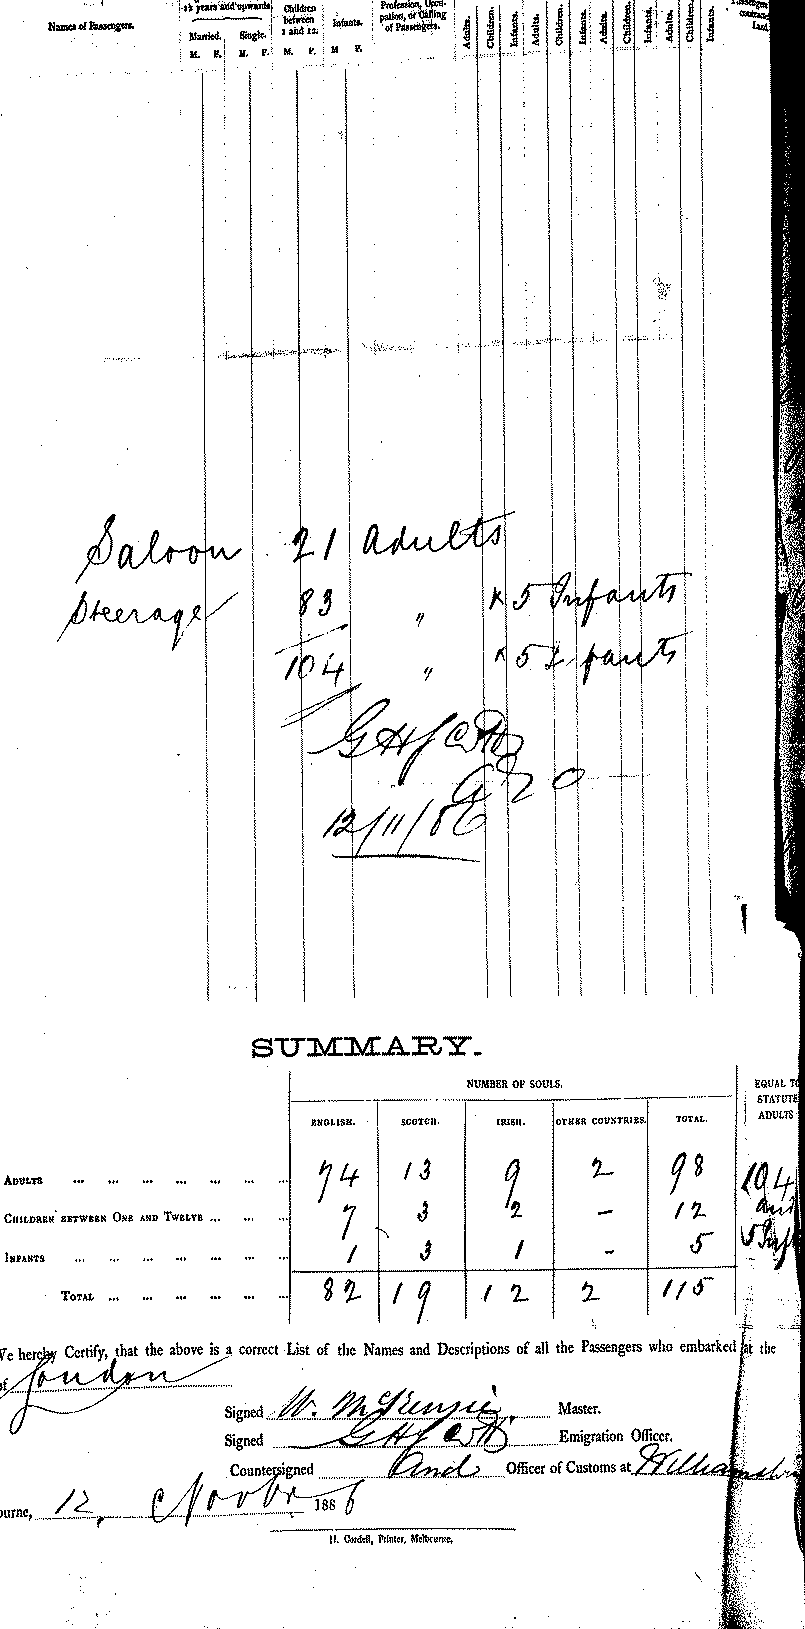 12 years and upwards.
Children between 1 and 12.
Infants.
Profession, Occupation, or Calling of Passengers.
Names of Passengers.
Married.
Single.
M. F. M. F. M. F. M F.
Adults. Children. Infants. Adults. Children. Infants. Adults. Children. Infants. Adults. Children. Infants.
Saloon 21 Adults
Steerage 83 " & 5 Infants
104 " & 5 Infants
12/11/86
SUMMARY.
NUMBER OF SOULS.
EQUAL TO STATUTE ADULTS
ENGLISH. SCOTCH. IRISH. OTHER COUNTRIES. TOTAL.
ADULTS ... ... ... ... ... ... ... 74 13 9 2 98 104
CHILDREN BETWEEN ONE AND TWELVE ... ... ... 7 3 2 – 12 and
INFANTS ... ... ... ... ... ... ... 1 3 1 - 5 5 Inf
TOTAL ... ... ... ... ... ... 82 19 12 2 115
We hereby Certify, that the above is a correct List of the Names and Descriptions of all the Passengers who embarked at the
of London
Signed W. McKenzie Master.
Signed Emigration Officer.
Countersigned Officer of Customs at Williams
ourne, 12, Novbr 1886
H. Cordell, Printer, Melbourne,